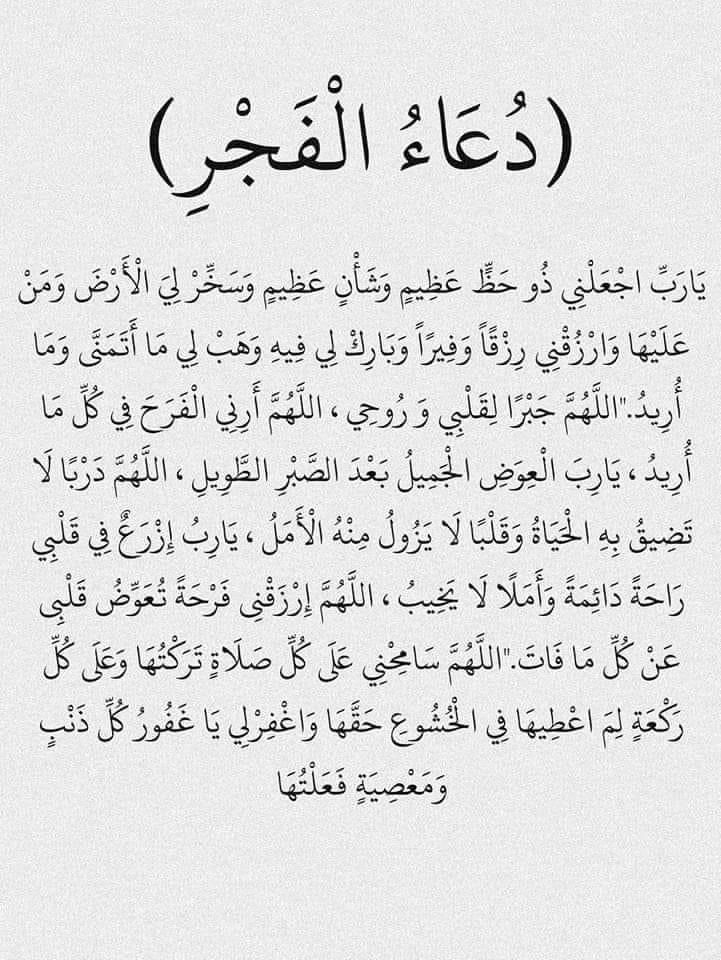 (دُعَاءُ الْفَجْرِ)
يَارَبِّ اجْعَلْنِي ذُو حَظٍّ عَظِيمٍ وَشَأْنٍ عَظِيمٍ وَسَخِّرْ لِيَ الْأَرْضَ وَمَنْ
عَلَيْهَا وَارْزُقْنِي رِزْقاً وَفِيراً وَبَارِكْ لِي فِيهِ وَهَبْ لِي مَا أَتَمَنَّى وَمَا
أُرِيدُ."اللَّهُمَّ جَبْرًا لِقَلْبِي وَ رُوحِي ، اللَّهُمَّ أَرِنِي الْفَرَحَ فِي كُلِّ مَا
أُرِيدُ ، يَارِبَ الْعِوَضِ الْجَمِيلُ بَعْدَ الصَّبْرِ الطَّوِيلِ ، اللَّهُمَّ دَرْبًا لَا
تَضِيقُ بِهِ الْحَيَاةُ وَقَلْبًا لَا يَزُولُ مِنْهُ الْأَمَلُ ، يَارِبُ إِزْرَعٌ فِي قَلْبِي
رَاحَةً دَائِمَةً وَأَمَلًا لَا يَخِيبُ ، اللَّهُمَّ إِرْزَقْنِي فَرْحَةً تُعَوِّضُ قَلْبِي
عَنْ كُلِّ مَا فَاتَ."اللَّهُمَّ سَامِحْنِي عَلَى كُلِّ صَلَاةٍ تَرَكْتُهَا وَعَلَى كُلِّ
رَكْعَةٍ لِمَ اعْطِيهَا فِي الْخُشُوعِ حَقَّهَا وَاغْفِرْلِي يَا غَفُورُ كُلِّ ذَنْبٍ
وَمَعْصِيَةٍ فَعَلْتُهَا